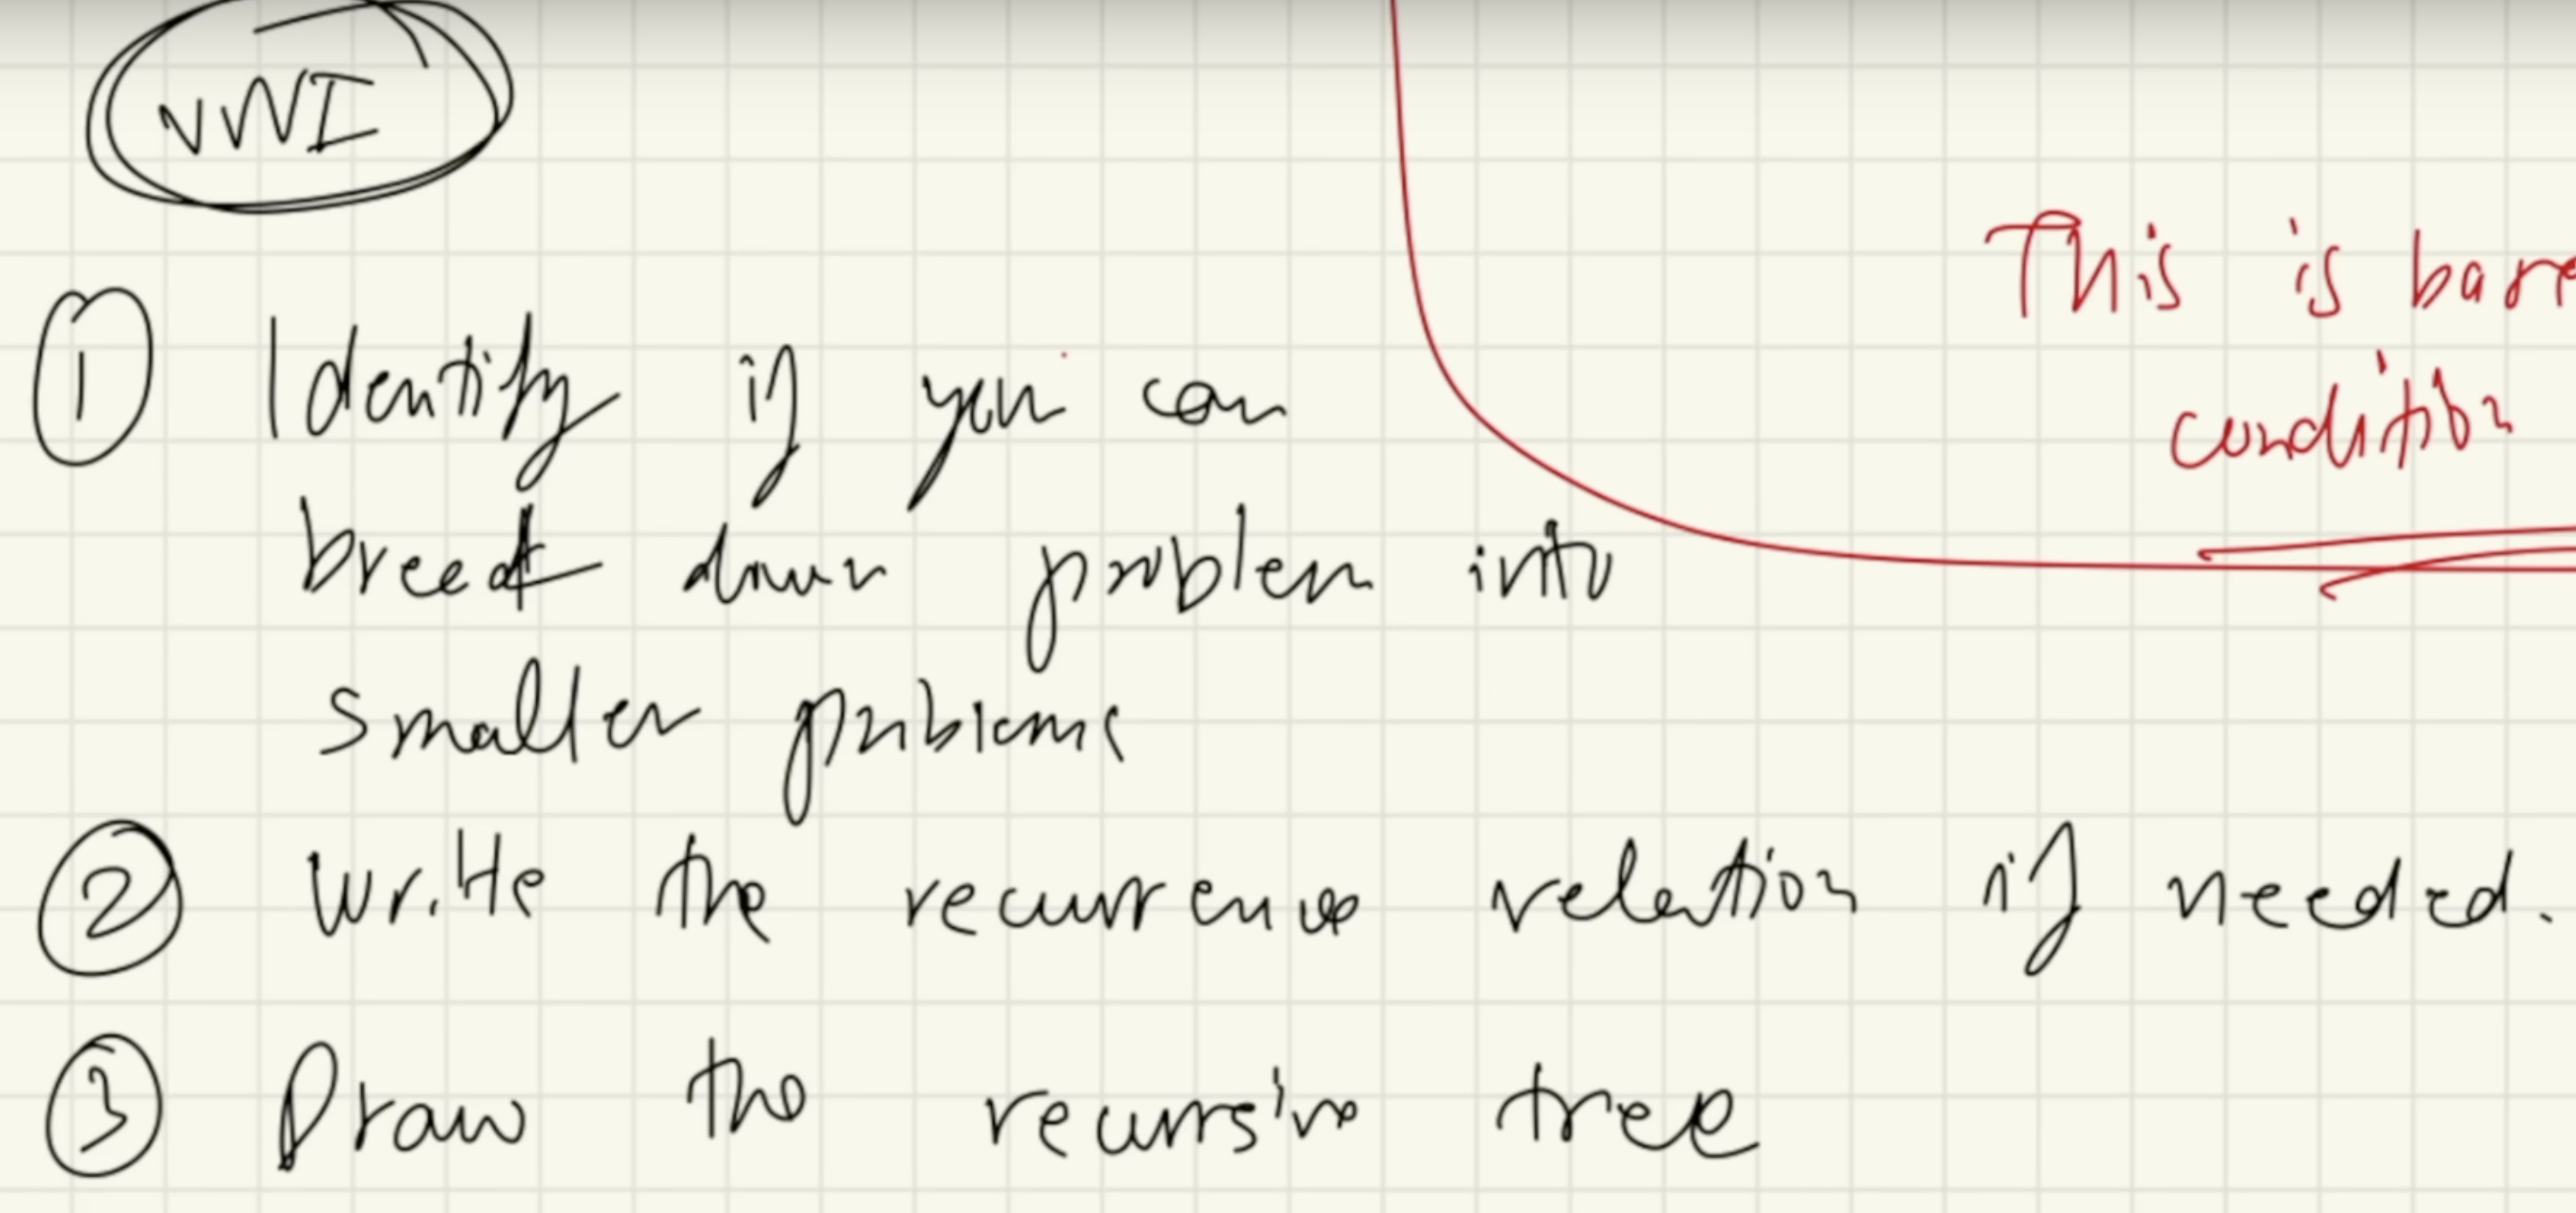 VVVI
This is base
condition
1 Identify if you can
break down problem into
smaller problems
2 Write the recurrence relation if needed.
3 Draw the recursive tree